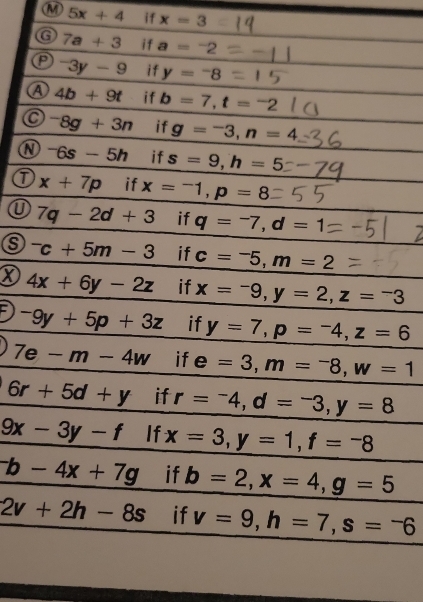 Ⓜ 5x + 4 if x = 3 = 19
Ⓖ 7a + 3 if a = ⁻2 = -11
Ⓟ ⁻3y − 9 if y = ⁻8 = 15
Ⓐ 4b + 9t if b = 7, t = ⁻2 10
Ⓒ ⁻8g + 3n if g = ⁻3, n = 4 = 36
Ⓝ ⁻6s − 5h if s = 9, h = 5 = -79
Ⓣ x + 7p if x = ⁻1, p = 8 = 55
Ⓤ 7q − 2d + 3 if q = ⁻7, d = 1 = -51
Ⓢ ⁻c + 5m − 3 if c = ⁻5, m = 2 =
Ⓧ 4x + 6y − 2z if x = ⁻9, y = 2, z = ⁻3
Ⓕ ⁻9y + 5p + 3z if y = 7, p = ⁻4, z = 6
7e − m − 4w if e = 3, m = ⁻8, w = 1
6r + 5d + y if r = ⁻4, d = ⁻3, y = 8
9x − 3y − f If x = 3, y = 1, f = ⁻8
⁻b − 4x + 7g if b = 2, x = 4, g = 5
2v + 2h − 8s if v = 9, h = 7, s = ⁻6